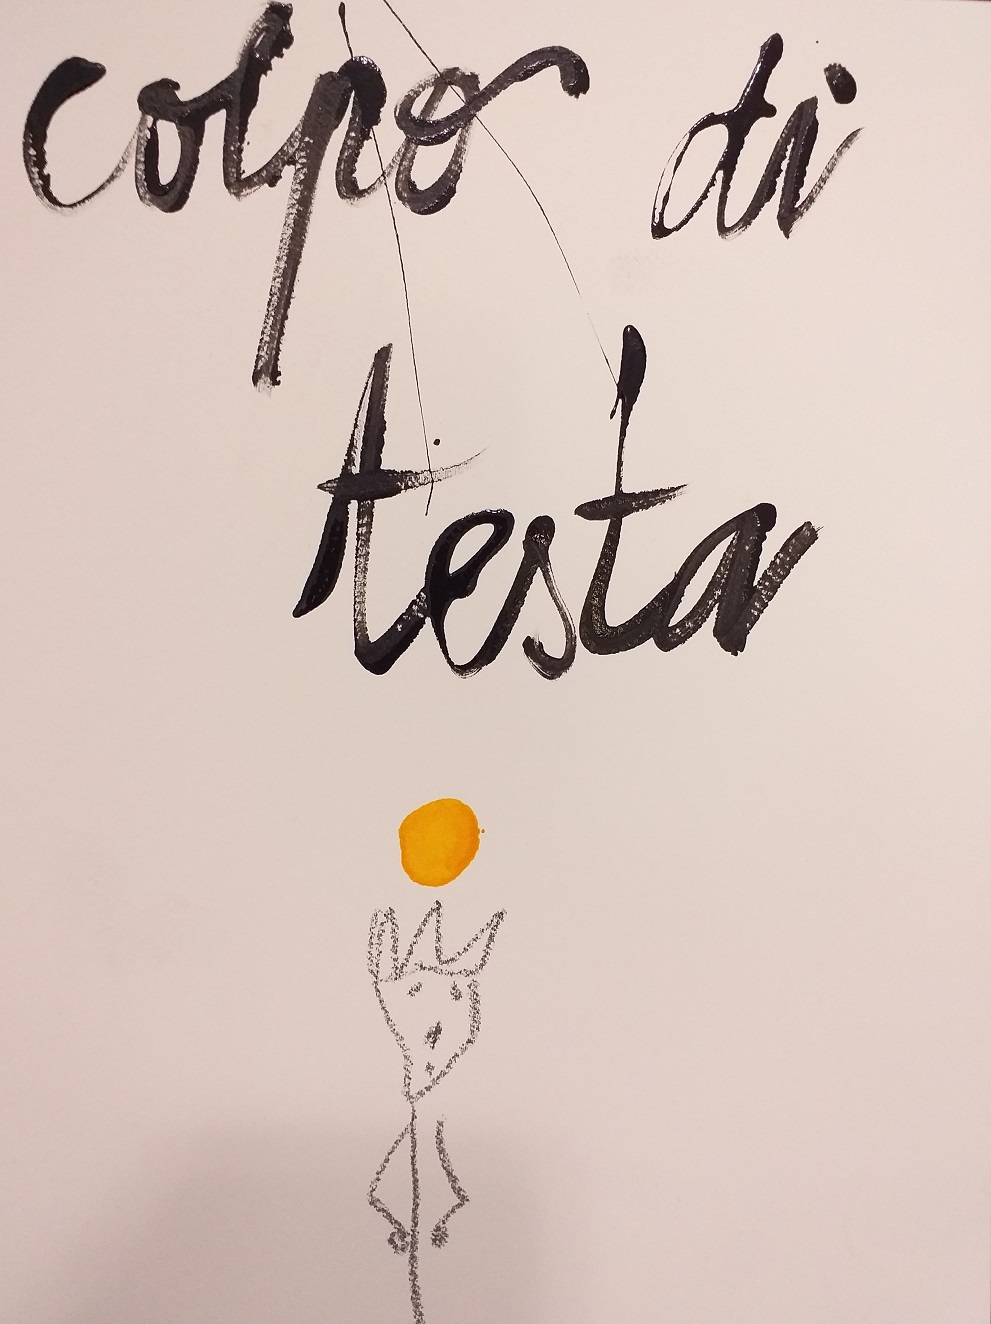 colpo di
testa